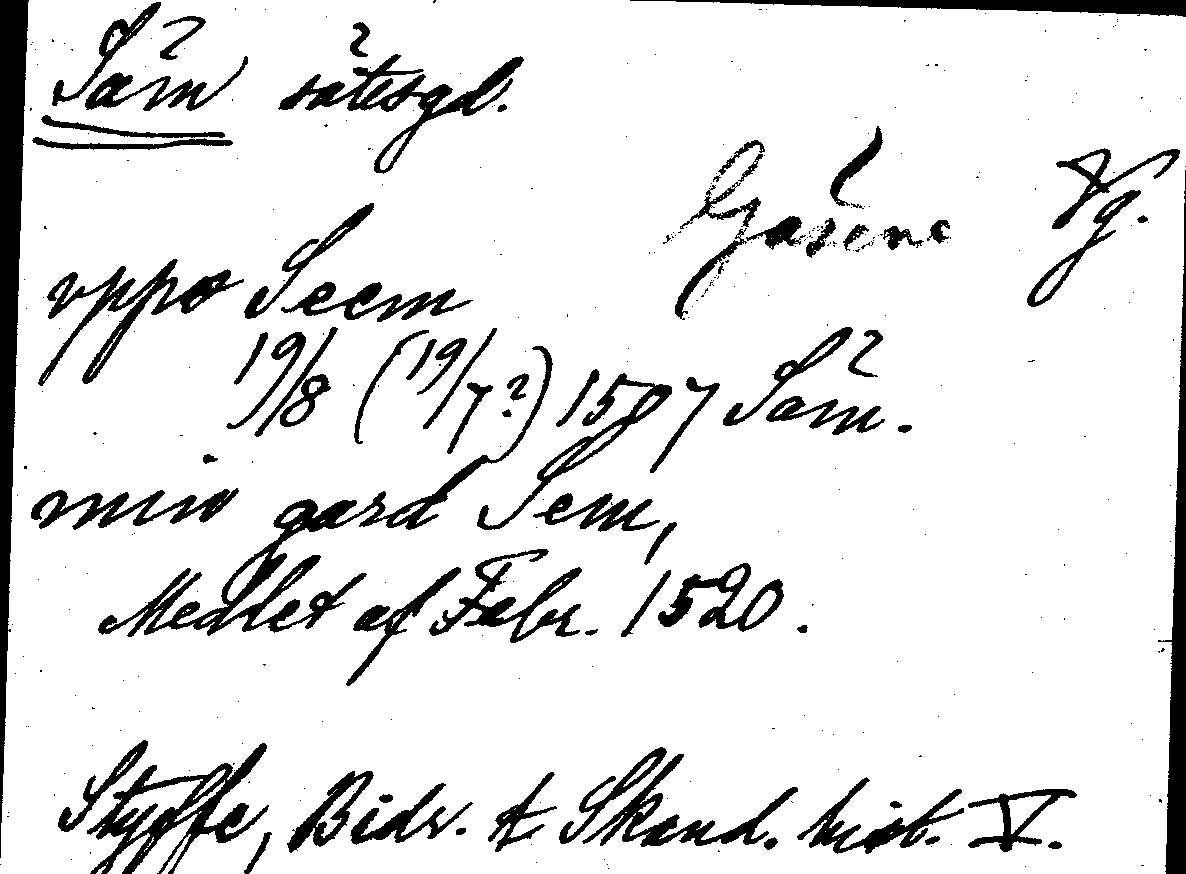 Säm sätesgd.
Gäsene Vg.
vppo Seem
19/8 (19/7?) 1507 Säm.
min gard Sem,
Medlet af Febr. 1520.
Styffe, Bidr. t. Skand. hist. V.